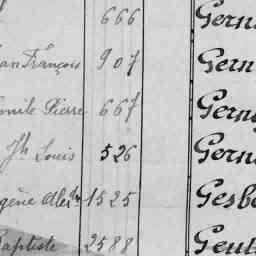 666 Gern
an François 907 Gern
mile Pierre 667 Gern
Jh Louis 526 Gern
gène Alex 1525 Gesb
Baptiste 2588 Geut